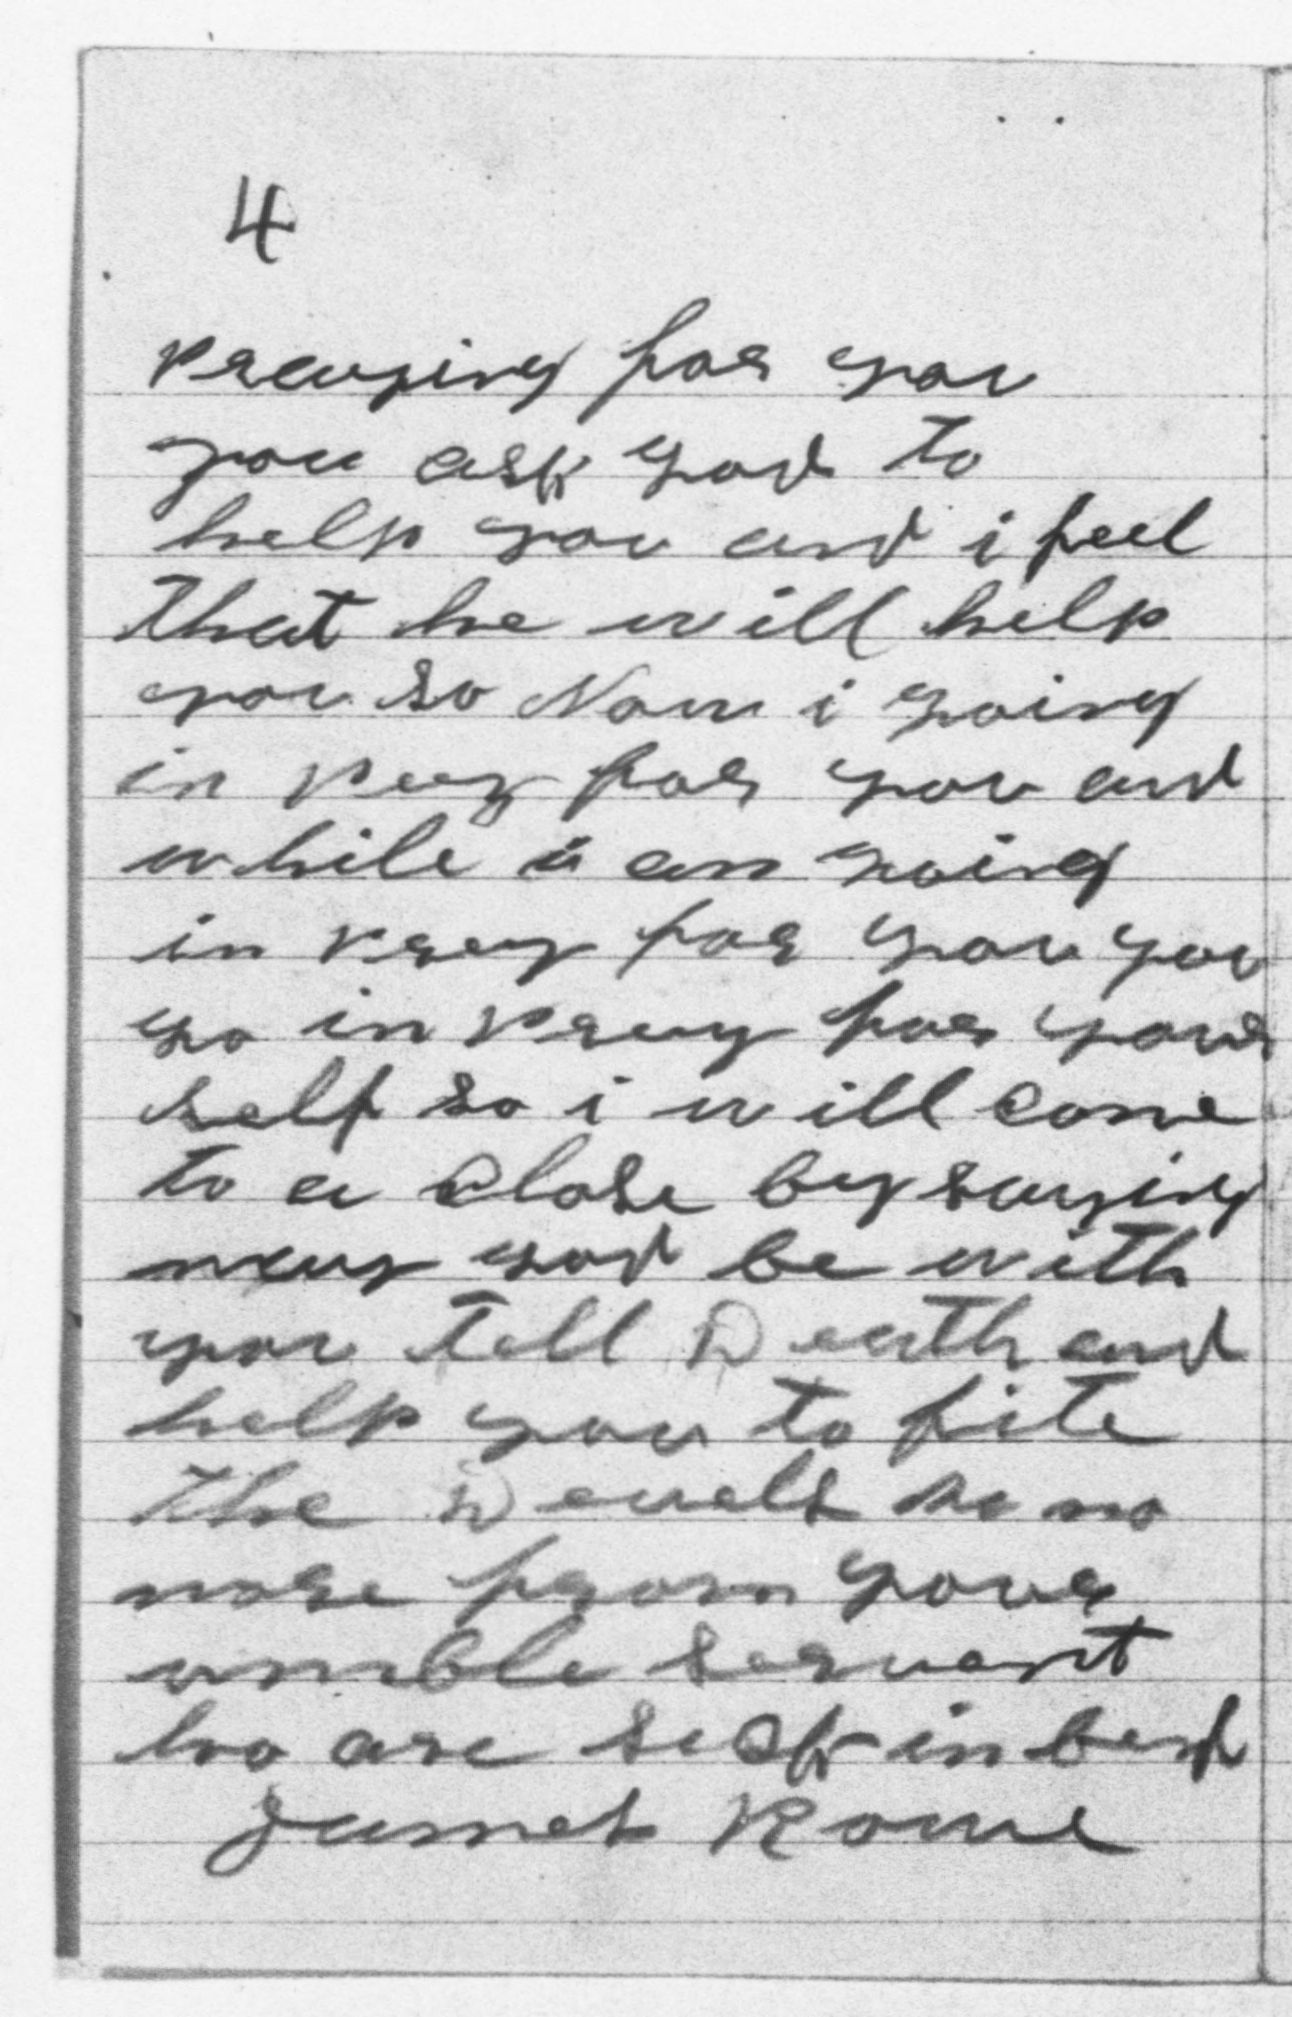 4
praying for you
you ask god to
help you and i feel
that he will help
you so Now i going
in pray for you and
while i am going
in pray for you you
go in pray for your
self so i will come
to a Close by saying
may god be with
you tell Death and
help you to fite
the Devels so no
more from your
umble servant
ho are sick in bed
James Rowe